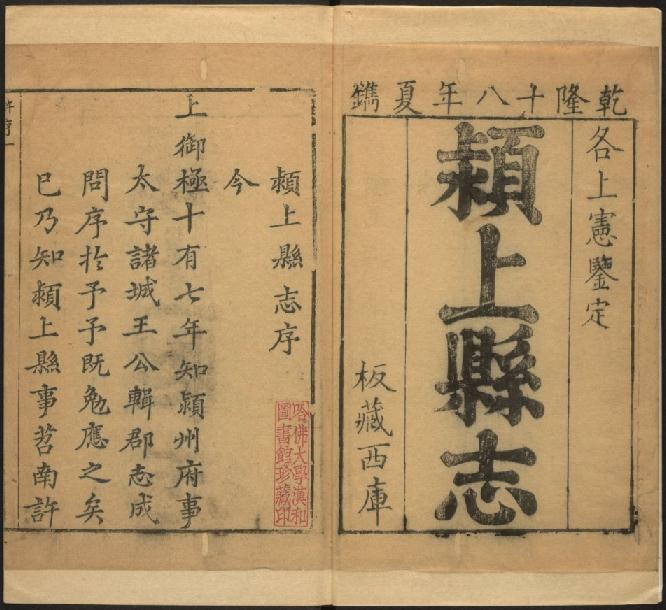 乾隆十八年夏鐫
各上憲鑒定
潁上縣志
板藏西庫
潁上縣志序
今
上御極十有七年知潁州府事
太守諸城王公輯郡志成
問序於予予既勉應之矣
已乃知潁上縣事苕南許
哈佛大學漢和
圖書館珍藏印